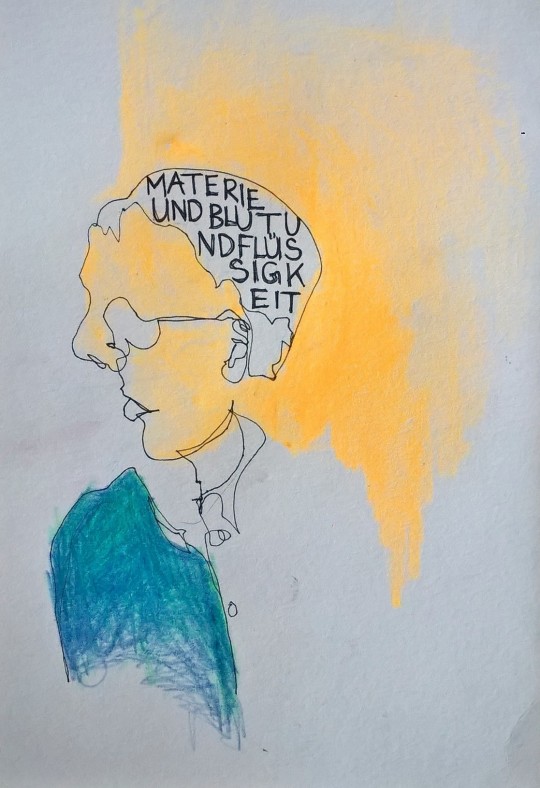 MATERIE
UND BLUT U
ND FLÜS
SIGK
EIT